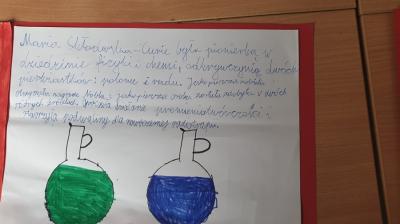 Maria Skłodowska-Curie była pionierką w
dziedzinie fizyki i chemii, odkrywczynią dwóch
pierwiastków: polonu i radu. Jako pierwsza kobieta
otrzymała nagrodę Nobla i jako pierwsza osoba została nagrodzona w dwóch
różnych Jej badania promieniotwórczości
podwaliny dla